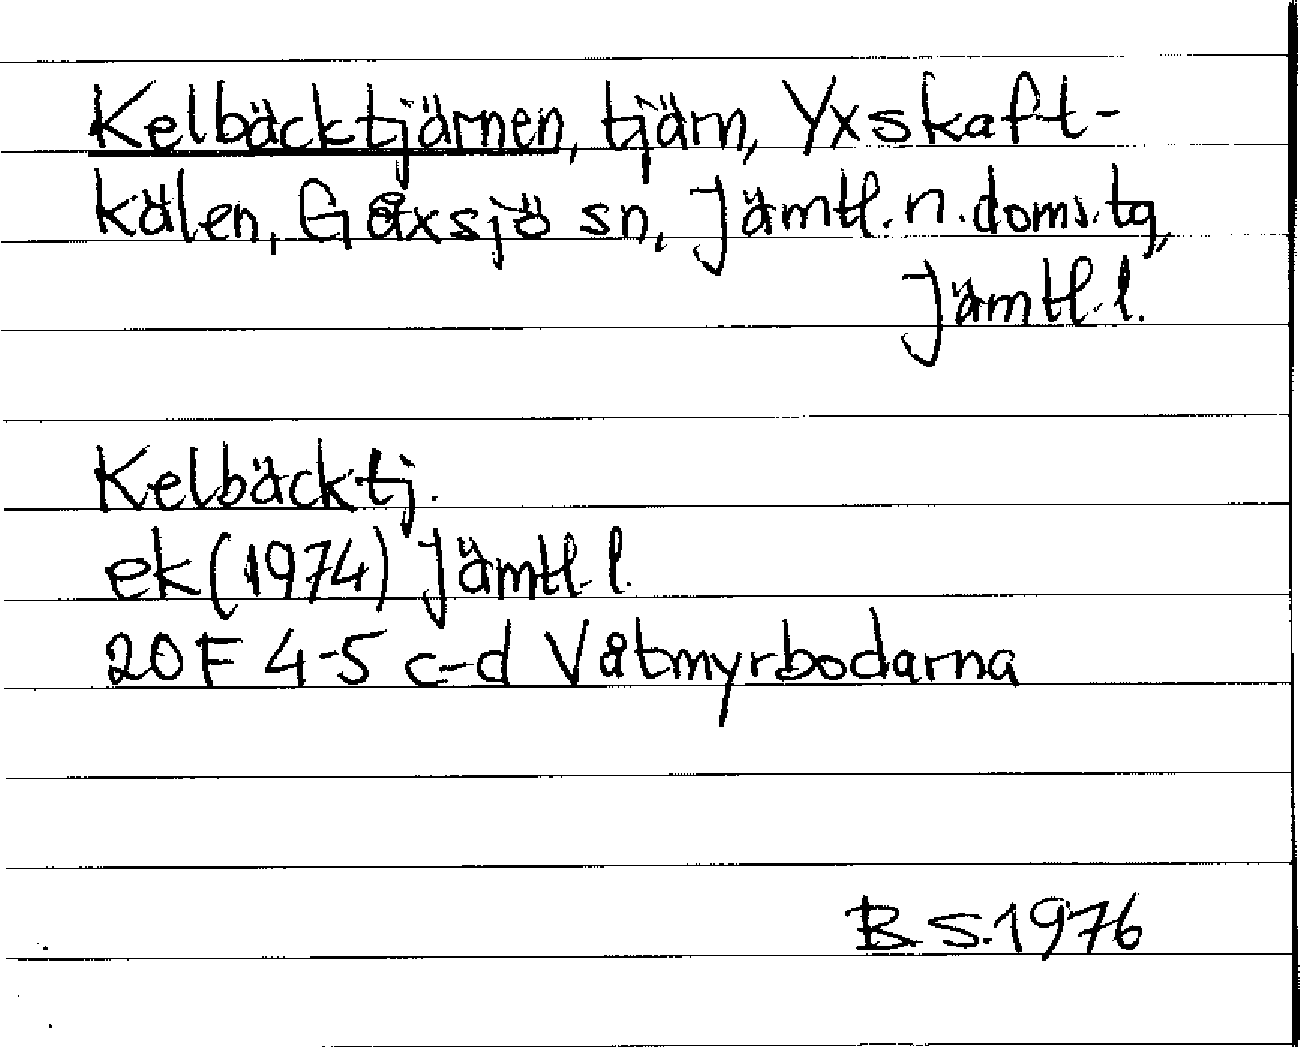 Kelbäcktjärnen, tjärn, Yxskaft-
kälen, Gåxsjö sn, Jämtl. n. doms. tg,
Jämtl. l.
Kelbäcktj.
ek (1974) Jämtl. l.
20 F 4-5 c-d Våtmyrbodarna
B.S. 1976